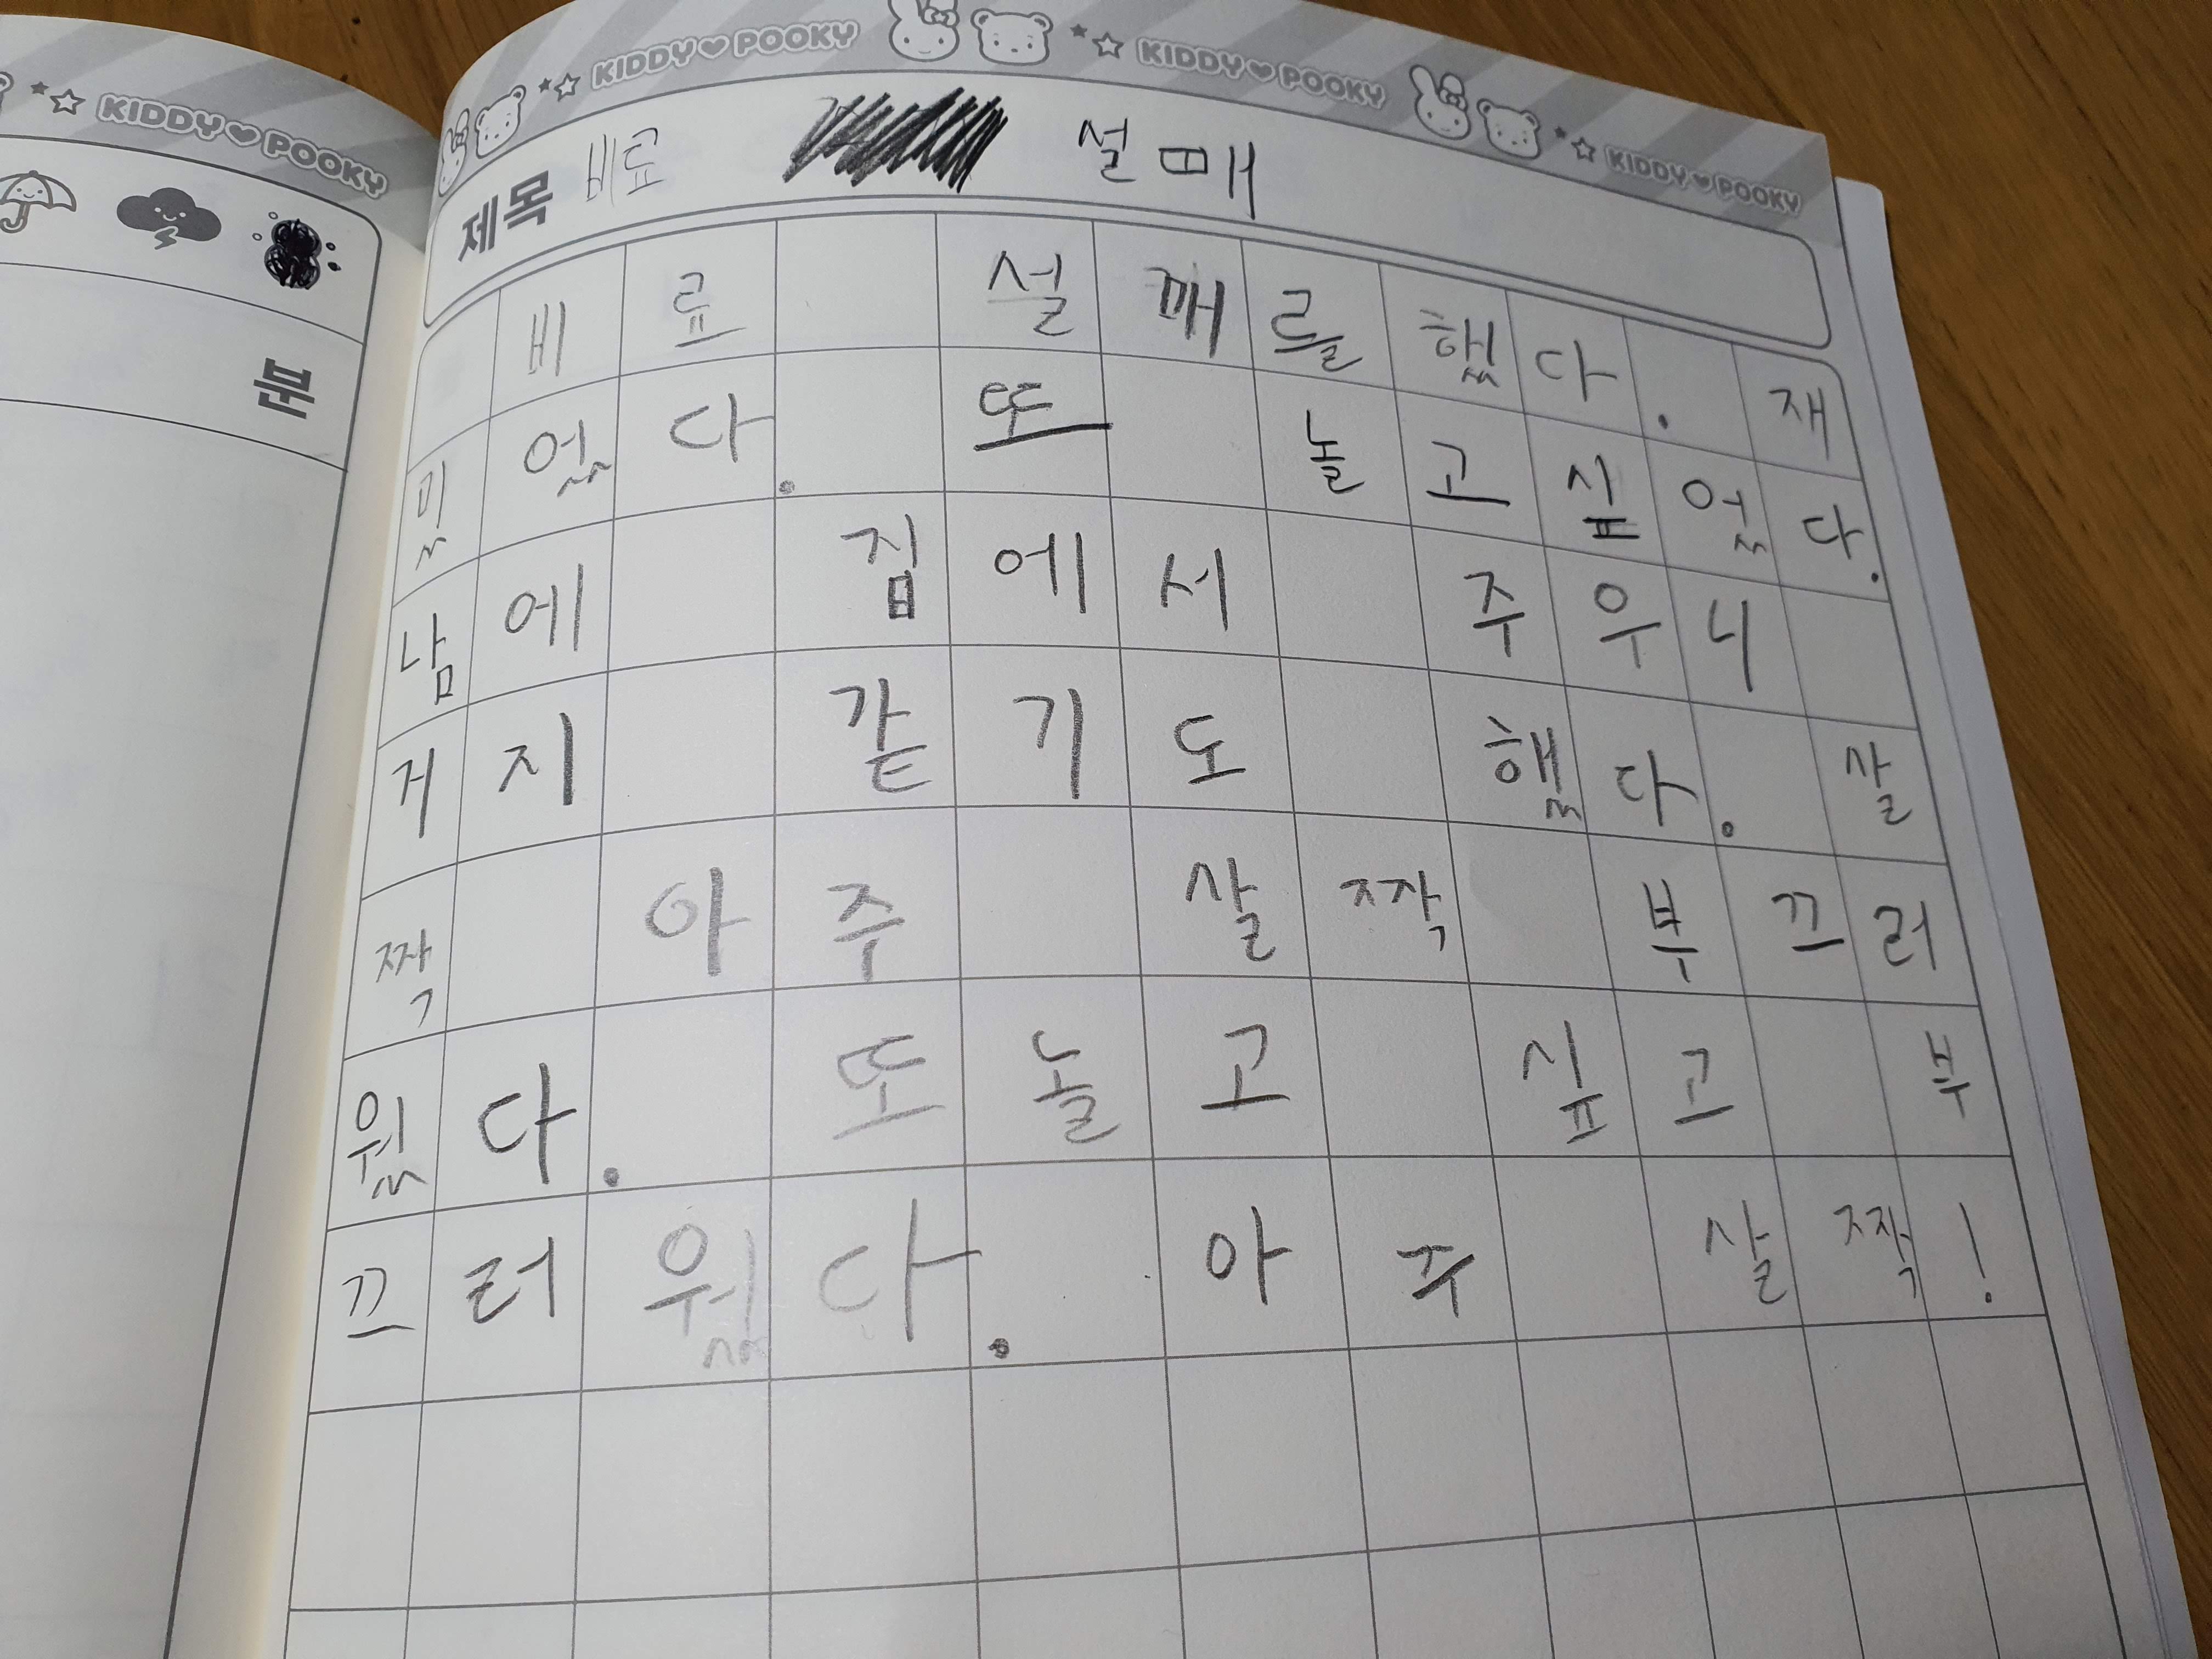 KIDDY POOKY
KIDDY POOKY KIDDY POOKY KIDDY POOKY
제목 비료 설매
분
비료 설깨를했다. 재
밌었다. 또 놀고싶었다.
남에 집에서 주우니
거지 같기도 했다. 살
짝 아주 살짝 부끄러
웠다. 또놀고 싶고 부
끄러웠다. 아주 살짝!